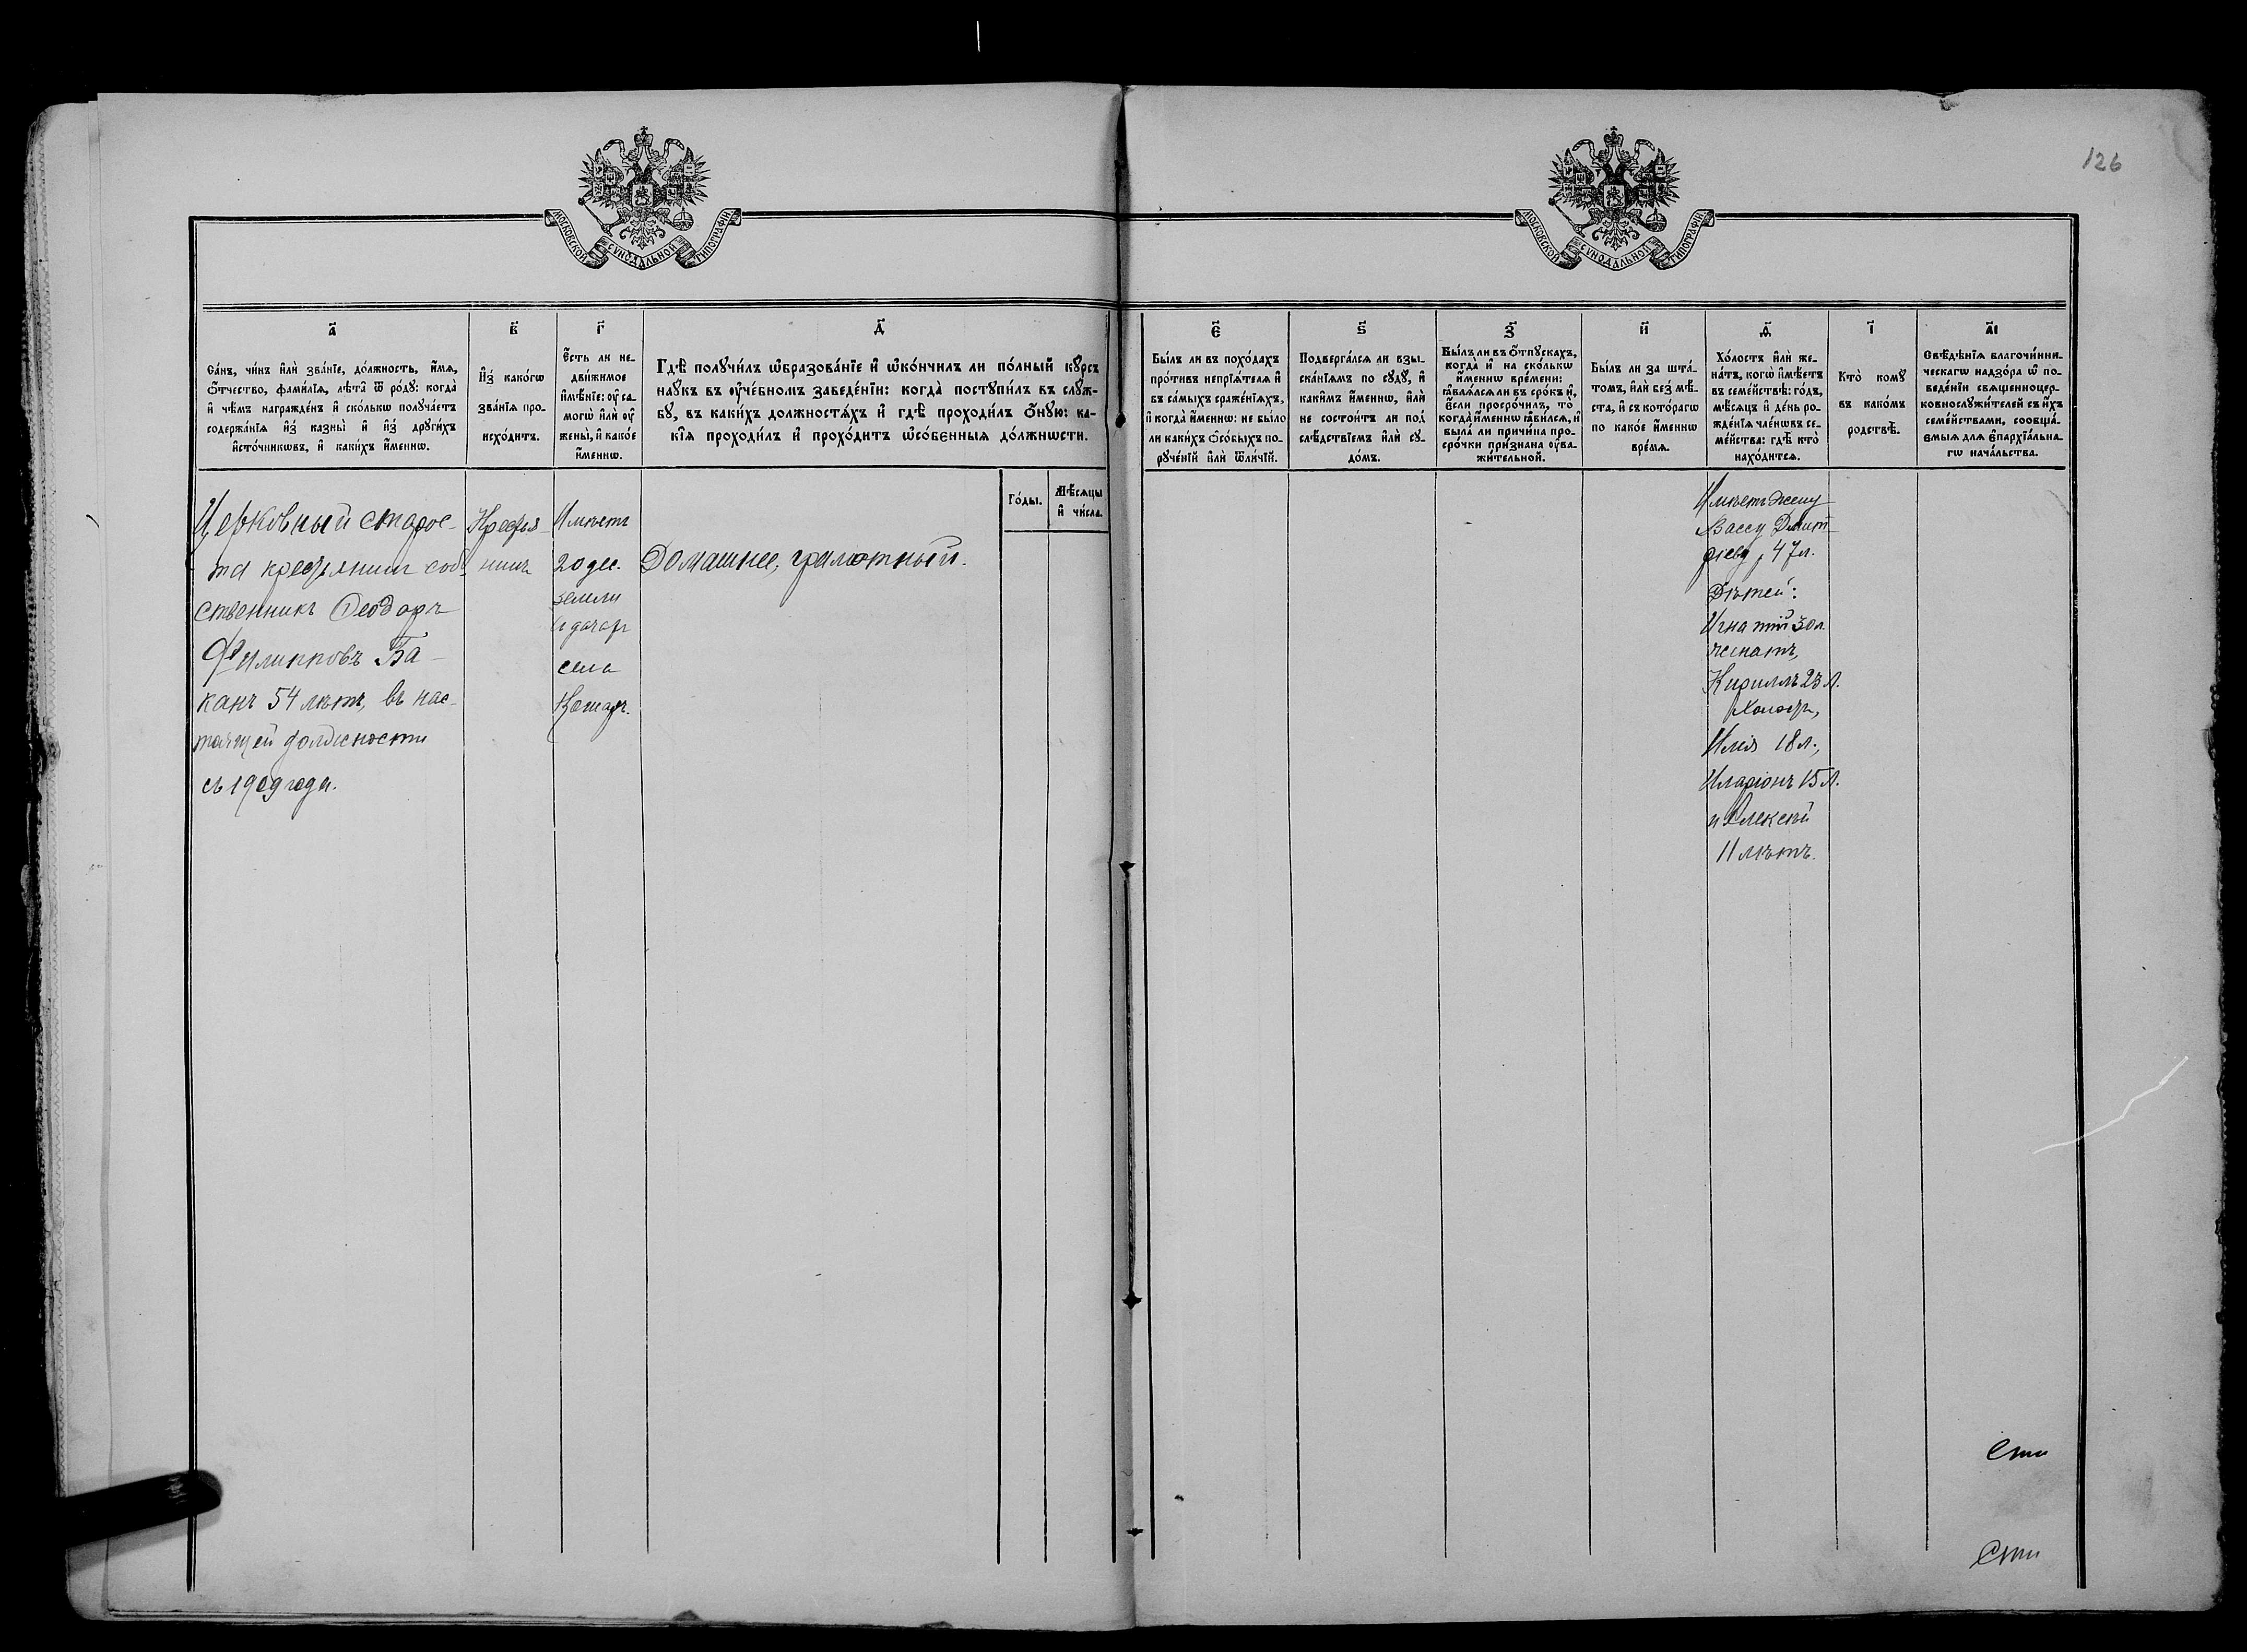 126
МОСКОВСКОЙ СѴНОДАЛЬНОЙ ТИПОГРАФІИ.
МОСКОВСКОЙ СѴНОДАЛЬНОЙ ТИПОГРАФІИ.
а҃
Са́нъ, чи́нъ и҆лѝ зва́нїе, до́лжность, и҆́мѧ,
ѻ҆́тчество, фами́лїѧ, лѣ́та ѿ ро́дꙋ: когда̀
и҆ чѣ́мъ награжде́нъ и҆ ско́лькѡ получа́етъ
содержа́нїѧ и҆з̾ казны̀ и҆ и҆з̾ дрꙋги́хъ
и҆сто́чникѡвъ, и҆ каки́хъ и҆́меннѡ.
в҃
И҆з̾ како́гѡ
зва́нїѧ про-
исхо́дитъ.
г҃
Є҆́сть ли не-
дви́жимое
и҆мѣ́нїе: ᲂу҆ са-
могѡ̀ и҆лѝ ᲂу҆
жены̀, и҆ како́е
и҆́меннѡ.
д҃
Гдѣ̀ получи́лъ ѡ҆бразова́нїе и҆ ѡ҆ко́нчилъ ли по́лный кꙋ́рсъ
наꙋ́къ въ ᲂу҆че́бномъ заведе́нїи: когда̀ постꙋпи́лъ въ слꙋ́ж-
бꙋ, въ каки́хъ должностѧ́хъ и҆ гдѣ̀ проходи́лъ ѻ҆́нꙋю: ка-
кі́ѧ проходи́лъ и҆ прохо́дитъ ѡ҆со́бенныѧ до́лжнѡсти.
Го́ды.
Мѣ́сѧцы
и҆ чи́сла.
є҃
Бы́лъ ли въ похо́дахъ
про́тивъ непрїѧ́телѧ и҆
въ са́мыхъ сраже́нїѧхъ,
и҆ когда̀ и҆́меннѡ: не бы́ло
ли каки́хъ ѻ҆со́быхъ по-
рꙋче́нїй и҆лѝ ѿли́чїй.
ѕ҃
Подверга́лсѧ ли взы-
ска́нїѧмъ по сꙋдꙋ̀, и҆
каки̑мъ и҆́меннѡ, и҆лѝ
не состои́тъ ли под̾
слѣ́дствїемъ и҆лѝ сꙋ-
до́мъ.
з҃
Бы́лъ ли въ ѻ҆́тпꙋскахъ,
когда̀ и҆ на ско́лькѡ
и҆́меннѡ вре́мени:
ꙗ҆влѧ́лсѧ ли въ сро́къ и҆,
є҆́сли просро́чилъ, то̀
когда̀ и҆́меннѡ ꙗ҆ви́лсѧ, и҆
была̀ ли причи́на про-
сро́чки при́знана ᲂу҆ва-
жи́тельной.
и҃
Бы́лъ ли за шта́-
томъ, и҆лѝ без̾ мѣ́-
ста, и҆ съ кото́рагѡ
по како́е и҆́меннѡ
вре́мѧ.
ѳ҃
Хо́лостъ и҆лѝ же-
на́тъ, когѡ̀ и҆мѣ́етъ
въ семе́йствѣ: го́дъ,
мѣ́сѧцъ и҆ де́нь ро-
жде́нїѧ чле́нѡвъ се-
ме́йства: гдѣ̀ кто̀
нахо́дитсѧ.
і҃
Кто̀ комꙋ̀
въ како́мъ
родствѣ̀.
а҃і
Свѣ́дѣнїѧ благочи́нни-
ческагѡ надзо́ра ѡ҆ по-
веде́нїи свѧщенноцер-
ковнослꙋжи́телей съ и҆́хъ
семе́йствами, сообща́-
ємыѧ для є҆пархїа́льна-
гѡ нача́льства.
Церковный старос-
та крестьянинъ соб-
ственникъ Ѳеодоръ
Филипповъ Ба-
канъ 54 лѣтъ, въ нас-
тоящей должности
съ 1909 года.
Крестья-
нинъ
Имѣетъ
20 дес.
земли
села
Домашнее, грамотный.
Имѣетъ жену
Вассу Димит-
ріеву, 47 л.
Дѣтей:
Игнатій 30 л.
женатъ,
Кириллъ 23 л.
холостъ,
Илія 18 л.,
Иларіонъ 15 л.
и Алексѣй
11 лѣтъ.